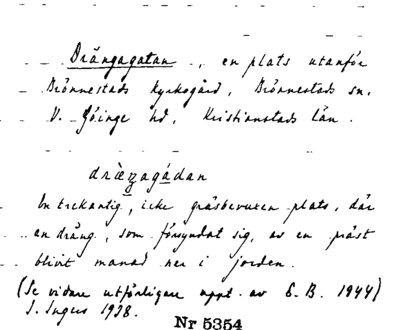 Drängagatan, en plats utanför
Brönnestads kyrkogård, Brönnestads sn.
V. Göinge hd, Kristianstads län.
dræŋagádan
En trekantig, icke gräsbevuxen plats, där
en dräng, som försyndat sig, av en präst
blivit manad ner i jorden.
(Se vidare utförligare uppt. av E.B. 1944)
I. Ingers 1938.
Nr 5354